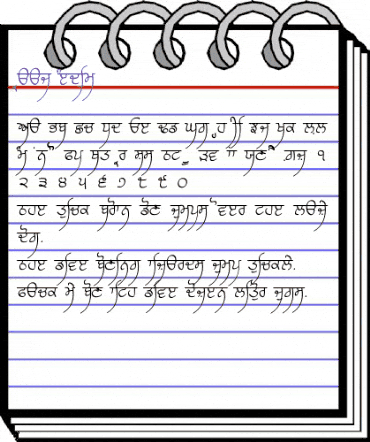 ੳੳਜ ੲਦਮਿ
ਅੳ ਭਬ ਛਚ ਧਦ ੳੲ ਢਡ ਘਗ ੍ਹਹ ੀਿ ਝਜ ਖਕ ਲਲ
ੰਮ ਂਨ ੌੋ ਫਪ ਥਤ ੍ਰਰ ਸ਼ਸ ਠਟ ੂੁ ੜਵ ਾਂ ਯਣ ੈੇ ਗ਼ਜ਼ ੧
੨ ੩ ੪ ੫ ੬ ੭ ੮ ੯ ੦
ਠਹੲ ਤੁਚਿਕ ਬਰੋਨ ਡੋਣ ਜੁਮਪਸ ੋਵੲਰ ਟਹੲ ਲੳਜੇ
ਦੋਗ.
ਠਹੲ ਡਵਿੲ ਬੋਣਨਿਗ ਾਜਿੳਰਦਸ ਜੁਮਪ ਤੁਚਿਕਲੇ.
ਫੳਚਕ ਮੇ ਬੋਣ ਾਟਿਹ ਡਵਿੲ ਦੋਜ਼ੲਨ ਲਤਿੁੋਰ ਜੁਗਸ.